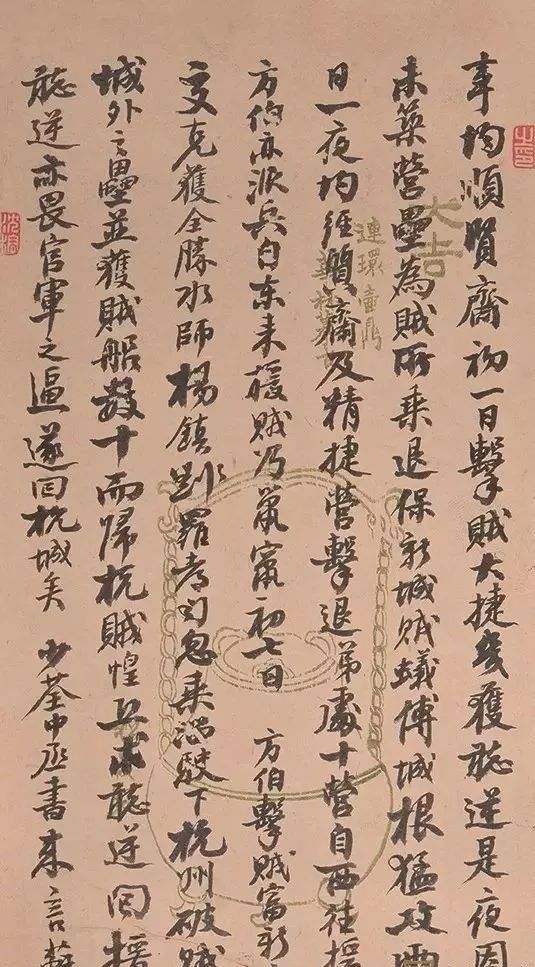 事均順賢齋初一日擊賊大捷幾獲聽逆是夜因
未築營壘為賊所乘退保新城賊蟻傅城根猛攻兩
日一夜均經賢齋及精捷營擊退弟處十營自西往援
方伯亦派兵自東來援賊乃鼠竄初七日 方伯擊賊富新
交克獲全勝水師楊鎮 羅 忽乘潮駛下杭州破賊
城外之壘並獲賊船數十而歸杭賊惶 求聽逆回援
聽逆亦畏官軍之逼遂回杭城矣 少荃中丞書來言蘇
大吉
連環壺鼎